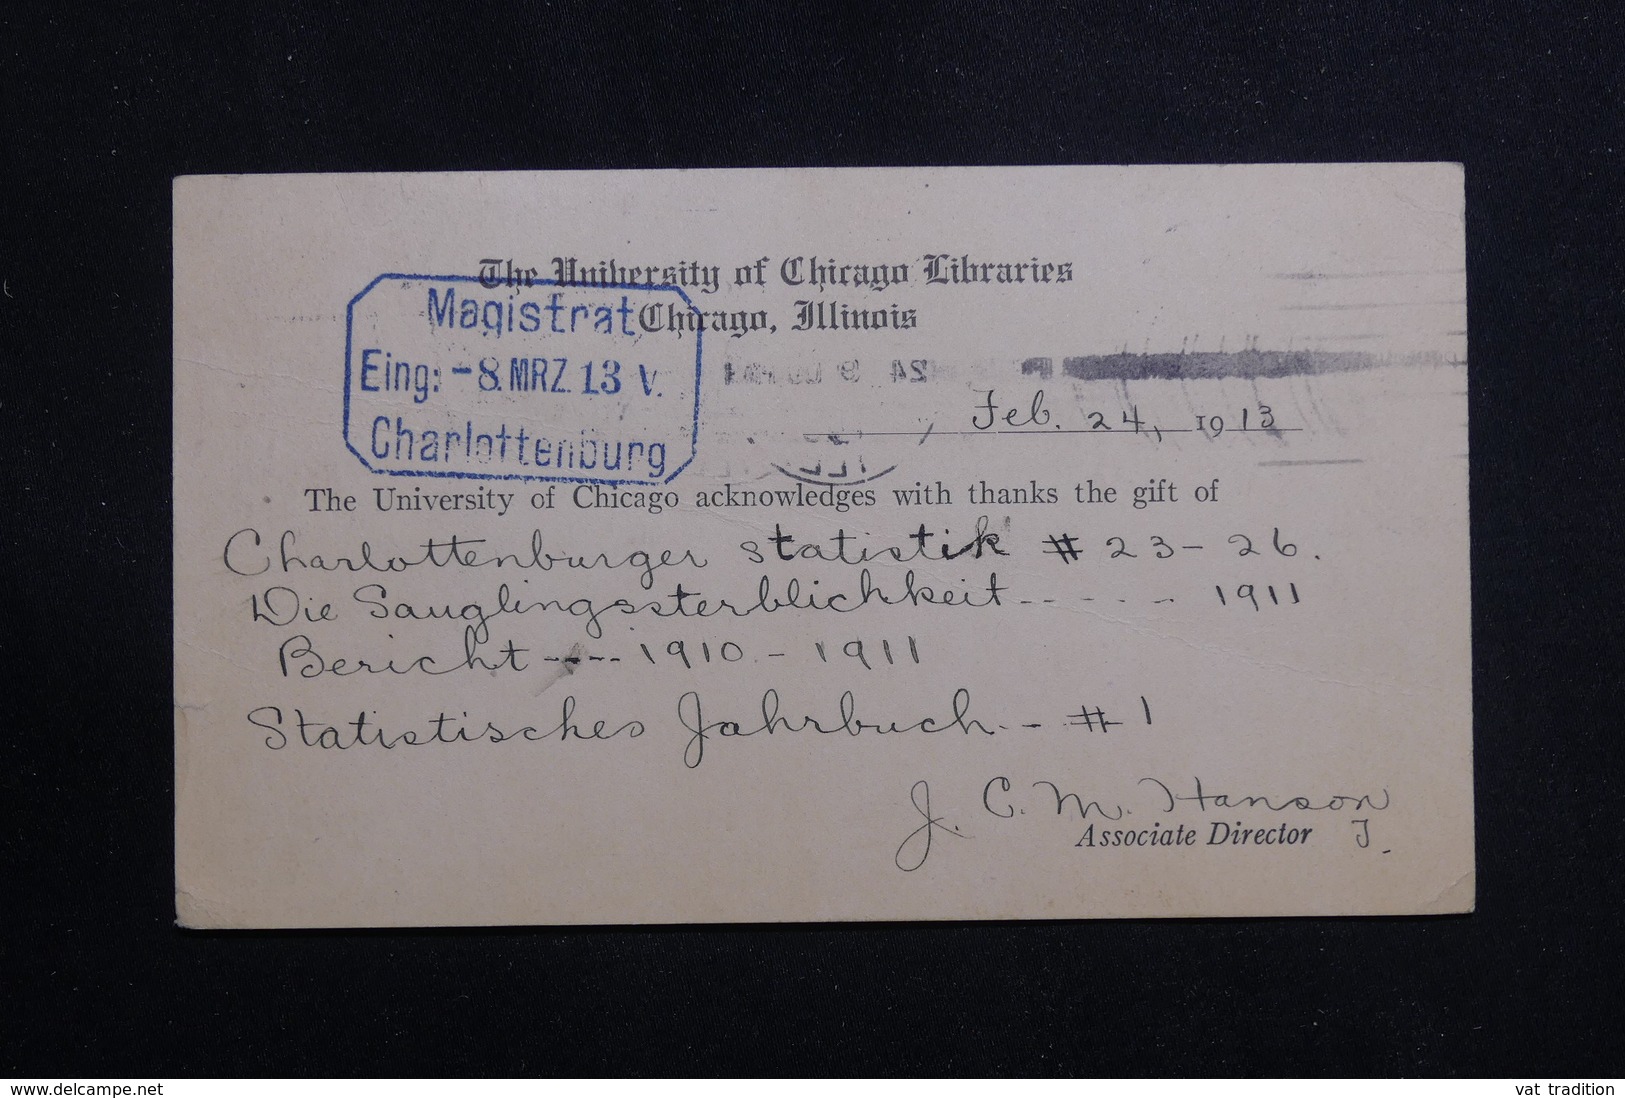 The University of Chicago Libraries
Chicago, Illinois
Magistrat
Eing: -8. MRZ. 13 V.
Charlottenburg
Feb. 24, 1913
The University of Chicago acknowledges with thanks the gift of
Charlottenburger Statistik # 23 - 26.
Die Sauglingssterblichkeit - - - - - 1911
Bericht ---- 1910 - 1911
Statistisches Jahrbuch - - # 1
J. C. M. Hanson
Associate Director J.
www.delcampe.net
vat tradition